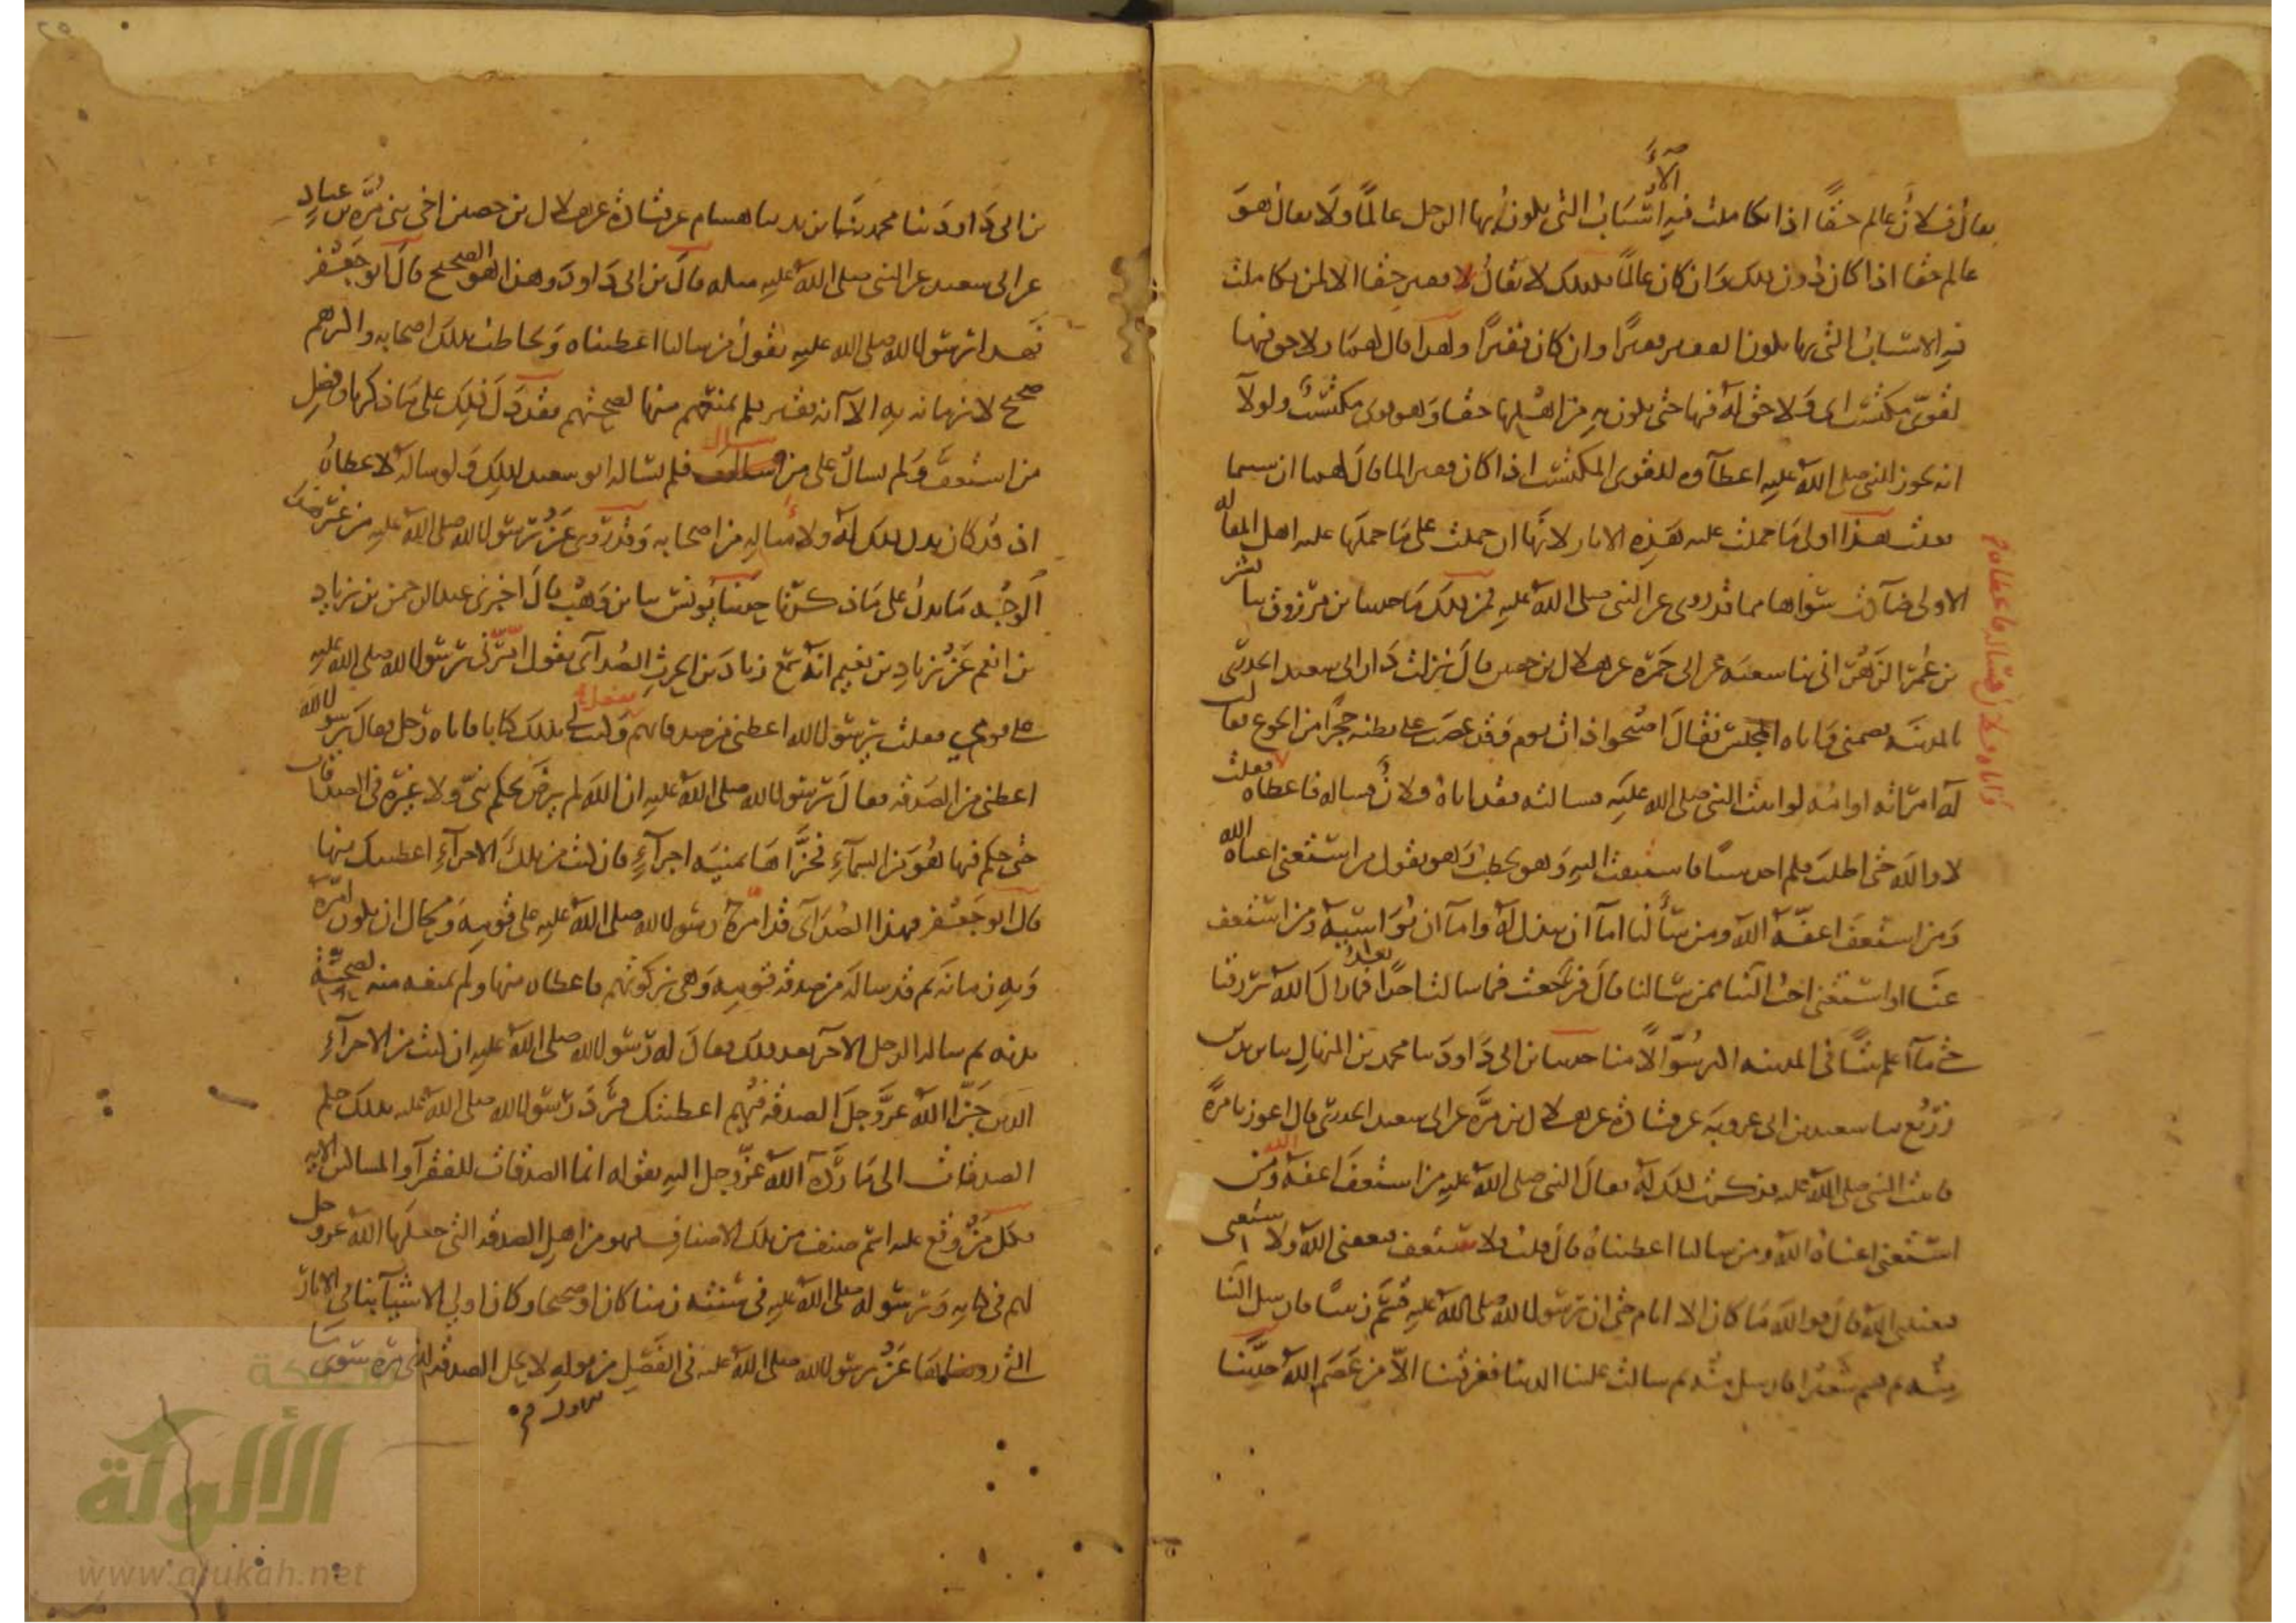 يقال فلان عالم حقا اذا تكاملت فيه الاسباب التي يكون بها الرجل عالما ولا يقال هو
عالم حقا اذا كان دون ذلك وان كان عالما فكذلك لا يقال فقير حقا الا لمن تكاملت
فيه الاسباب التي بها يكون الفقير فقيرا وان كان فقيرا ولهذا قال لهما ولا حق فيها
لقوي مكتسب اي ولا حق له فيها حتى يكون به من اهلها حقا وهو قوي مكتسب ولولا
انه يجوز للنبي صلى الله عليه اعطاوه للقوي المكتسب اذا كان فقيرا لما قال لهما ان شيتما
فعلت هذا اولى ما حملت عليه هذه الاثار لانها ان حملت على ما حملها عليه اهل المقاله
الاولى ضادت سواها مما قد روي عن النبي صلى الله عليه فمن ذلك ما حدثنا بن مرزوق ثنا بشر
بن عمر الزهراني ثنا شعبه عن ابي حمزة عن هلال بن حصن قال نزلت دار ابي سعيد الخدري
بالمدينه فضمني واياه المجلس فقال اصبحوا ذات يوم وقد عصب على بطنه حجرا من الجوع فقالت
له امراته او امه لو اتيت النبي صلى الله عليه فسالته فقد اتاه فلان فساله فاعطاه فقلت
واتاه فلان فساله فاعطاه
لا والله حتى اطلب فلم اجد شيا فاستبقت اليه وهو يخطب وهو يقول من استغنى اغناه الله
ومن استعف اعفه الله ومن سألنا اما ان نبذل له واما ان نواسيه ومن استعف
عنا او استغنى احب الينا ممن سالنا قال فرجعت فما سالت احدا بعد فما زال الله يرزقنا
حتى ما اعلم بيتا في المدينه اكثر سوالا منا حدثنا بن ابي داود ثنا محمد بن المنهال ثنا يزيد بن
زريع ثنا سعيد بن ابي عروبة عن قتادة عن هلال بن مرة عن ابي سعيد الخدري قال اعوزنا مرة
فاتيت النبي صلى الله عليه فذكرت ذلك له فقال النبي صلى الله عليه من استعف اعفه الله ومن
استغنى اغناه الله ومن سالنا اعطيناه قال قلت فلاستعف فيعفني الله ولاستغني
فيغنيني الله قال فوالله ما كان الا ايام حتى ان رسول الله صلى الله عليه قسم زبيبا فارسل الينا
منه ثم قسم شعيرا فارسل منه ثم سالت علينا الدنيا فغرقتنا الا من عصم الله حدثنا
بن ابي داود ثنا محمد بن يزيد ثنا هشام عن قتادة عن هلال بن حصن اخي بني مرة بن عباد
عن ابي سعيد عن النبي صلى الله عليه مثله قال بن ابي داود وهذا هو الصحيح قال ابو جعفر
فهذا رسول الله صلى الله عليه يقول من سالنا اعطيناه ويخاطب بذلك اصحابه واكثرهم
صحيح لا زمانه به الا انه فقير فلم يمنعهم منها لصحتهم فقد دل ذلك على ما ذكرنا وفضل
من استعف ولم يسال على من سال فلم يساله ابو سعيد لذلك ولو ساله لاعطاه
اذ قد كان بذل ذلك له ولامثاله من اصحابه وقد روي عن رسول الله صلى الله عليه من غير هذا
الوجه ما يدل على ما ذكرنا حدثنا يونس ثنا بن وهب قال اخبرني عبد الرحمن بن زياد
بن انعم عن زياد بن نعيم انه سمع زياد بن الحرث الصدائي يقول امرني رسول الله صلى الله عليه
على قومي فقلت يرسول الله اعطني من صدقاتهم ففعل وكتب لي بذلك كتابا فاتاه رجل فقال يرسول الله
اعطني من الصدقه فقال رسول الله صلى الله عليه ان الله لم يرض بحكم نبي ولا غيره في الصدقات
حتى حكم فيها هو من السماء فجزاها ثمنيه اجزاء فان كنت من تلك الاجزاء اعطيتك منها
قال ابو جعفر فهذا الصدائي قد امره رسول الله صلى الله عليه على قومه ومحال ان يكون امره
وبه زمانه ثم قد ساله من صدقه قومه وهي زكوتهم فاعطاه منها ولم يمنعه منه لصحة
بدنه ثم ساله الرجل الاخر بعد ذلك فقال له رسول الله صلى الله عليه ان كنت من الاجزاء
الذين جزا الله عز وجل الصدقه فيهم اعطيتك فرد رسول الله صلى الله عليه بذلك حكم
الصدقات الى ما رده الله عز وجل اليه بقوله انما الصدقات للفقراء والمساكين الايه
فكل من وقع عليه اسم صنف من تلك الاصناف فهو من اهل الصدقه التي جعلها الله عز وجل
لهم في كتابه ورسوله صلى الله عليه في سنته زمنا كان او صحيحا وكان اولى الاشيا بنا في الاثار
التي رويناها عن رسول الله صلى الله عليه في الفصل من قوله لا تحل الصدقه لذي مرة سوي
شبكة
الألوكة
www.alukah.net